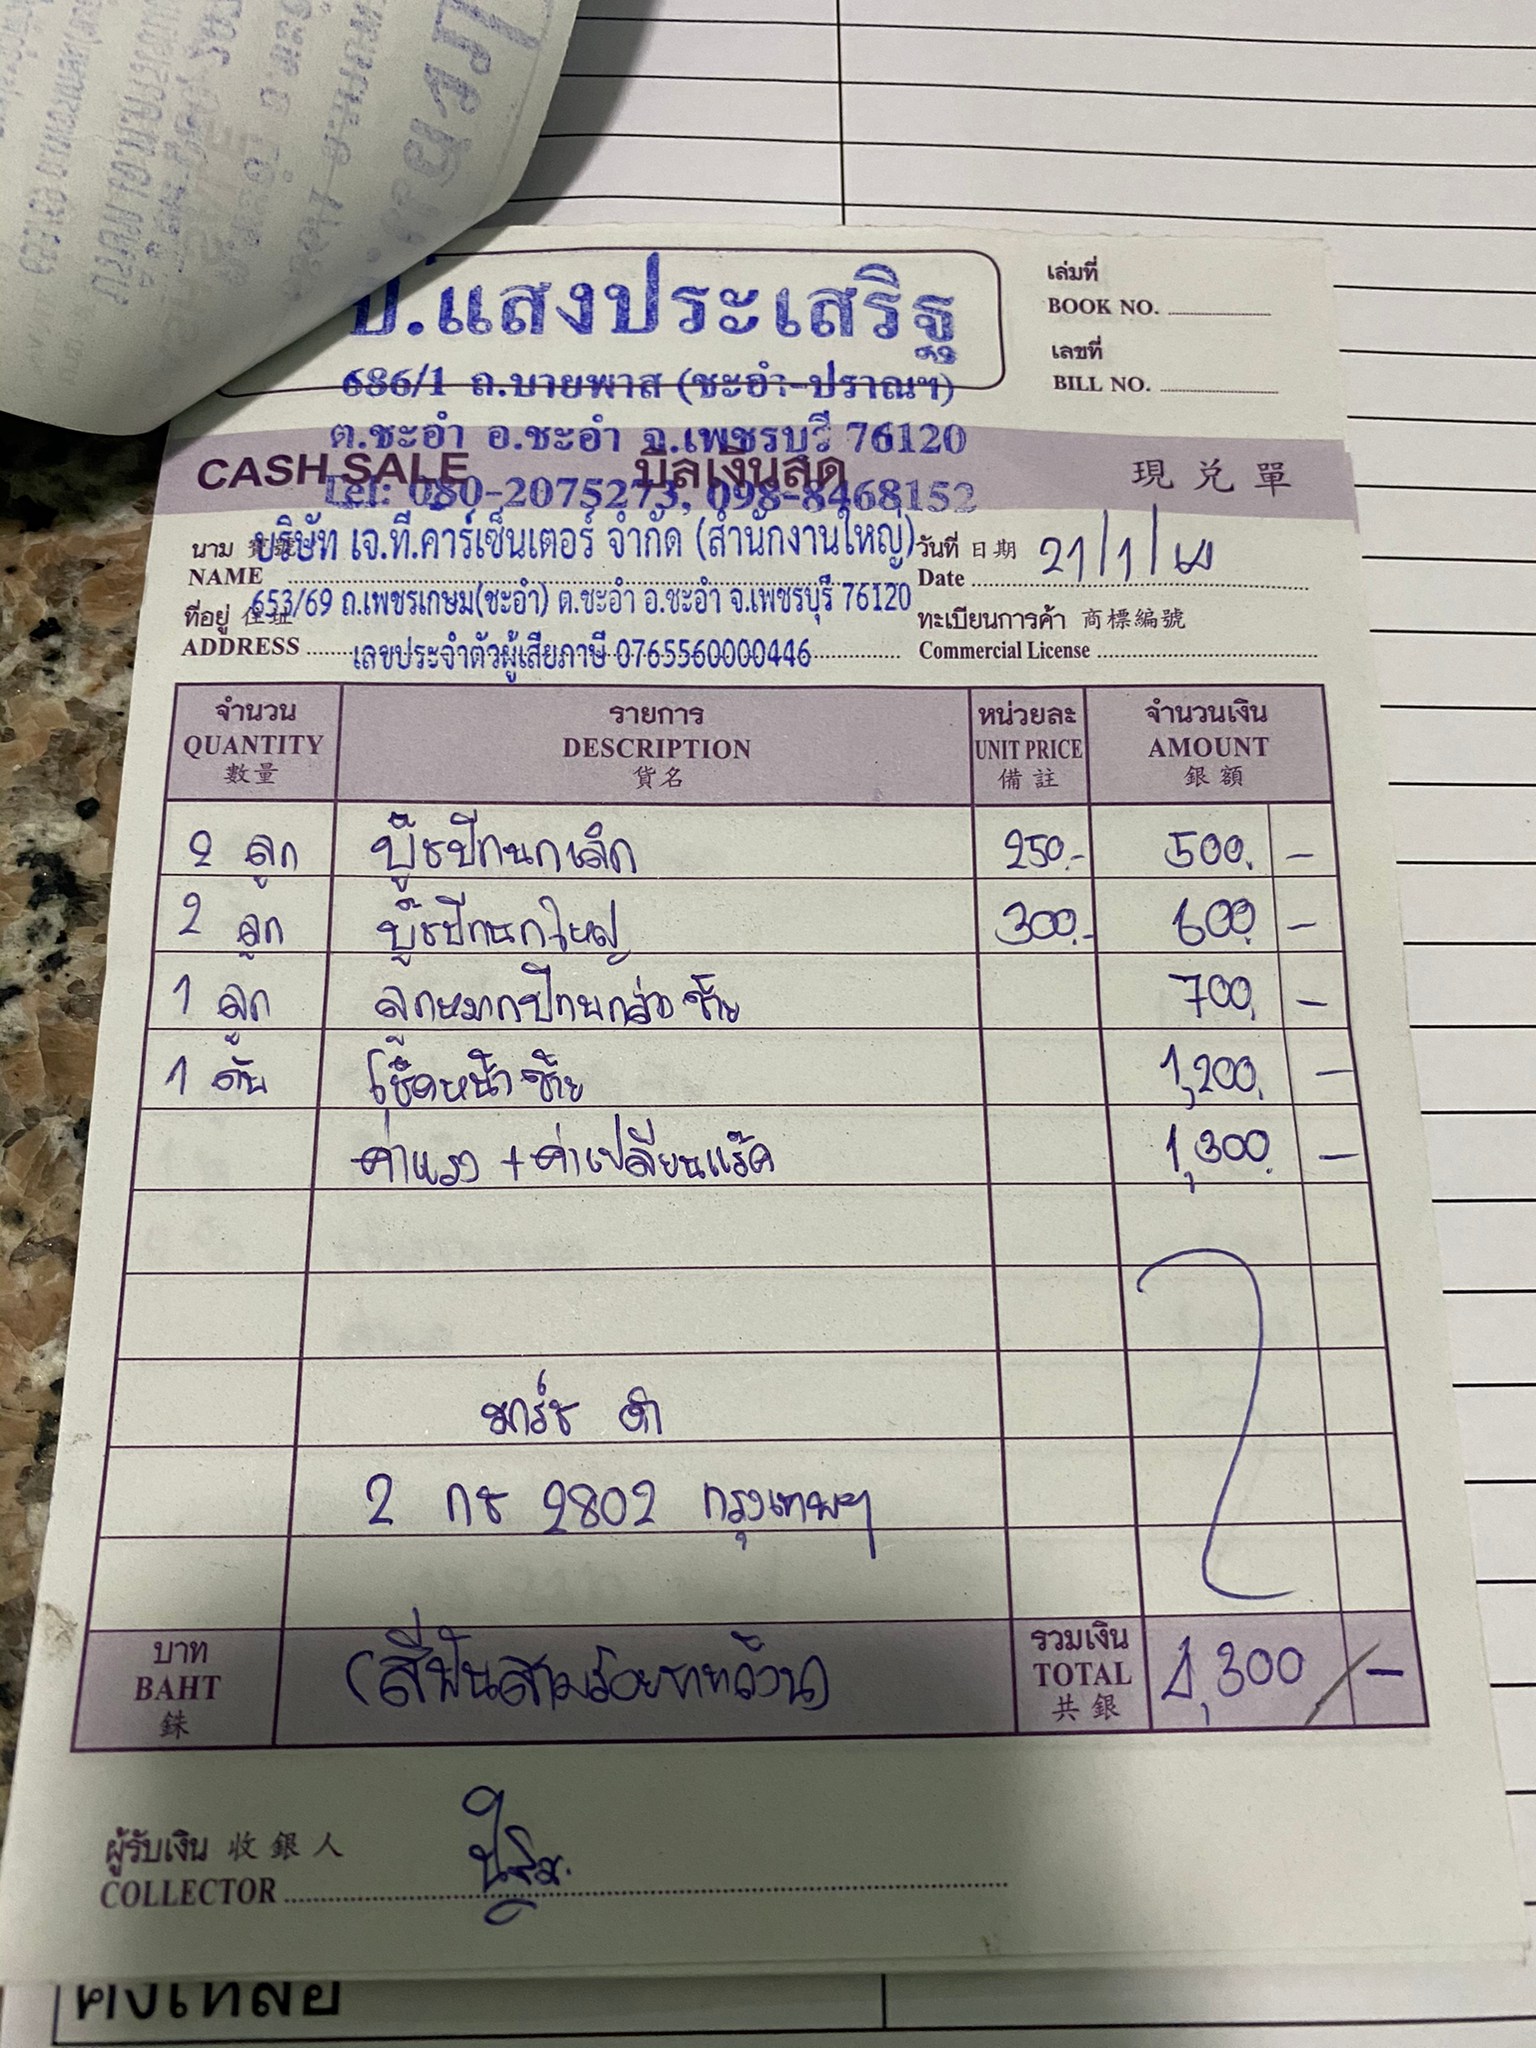 ป.แสงประเสริฐ
686/1 ถ.บายพาส (ชะอำ-ปราณฯ)
ต.ชะอำ อ.ชะอำ จ.เพชรบุรี 76120
Tel: 080-2075273, 098-8468152
เล่มที่
BOOK NO.
เลขที่
BILL NO.
CASH SALE บิลเงินสด 現兑單
นาม 寶號 บริษัท เจ.ที.คาร์เซ็นเตอร์ จำกัด (สำนักงานใหญ่)
NAME
วันที่ 日期 21/1/
Date
ที่อยู่ 住址 653/69 ถ.เพชรเกษม(ชะอำ) ต.ชะอำ อ.ชะอำ จ.เพชรบุรี 76120
ADDRESS เลขประจำตัวผู้เสียภาษี 0765560000446
ทะเบียนการค้า 商標編號
Commercial License
จำนวน รายการ หน่วยละ จำนวนเงิน
QUANTITY DESCRIPTION UNIT PRICE AMOUNT
數量 貨名 備註 銀額
2 ลูก บู๊ชปีกนกเล็ก 250.- 500. –
2 ลูก บู๊ชปีกนกใหญ่ 300.- 600. –
1 ลูก ลูกหมากปีกนกล่าง ซ้าย 700. –
1 ต้น โช๊คหน้า ซ้าย 1,200. –
ค่าแรง + ค่าเปลี่ยนแร๊ค 1,300. –
มาร์ช ดำ
2 กช 2802 กรุงเทพฯ
บาท (สี่พันสามร้อยบาทถ้วน) รวมเงิน 4,300 –
BAHT TOTAL
銖 共銀
ผู้รับเงิน 收銀人
COLLECTOR
คงเหลือ